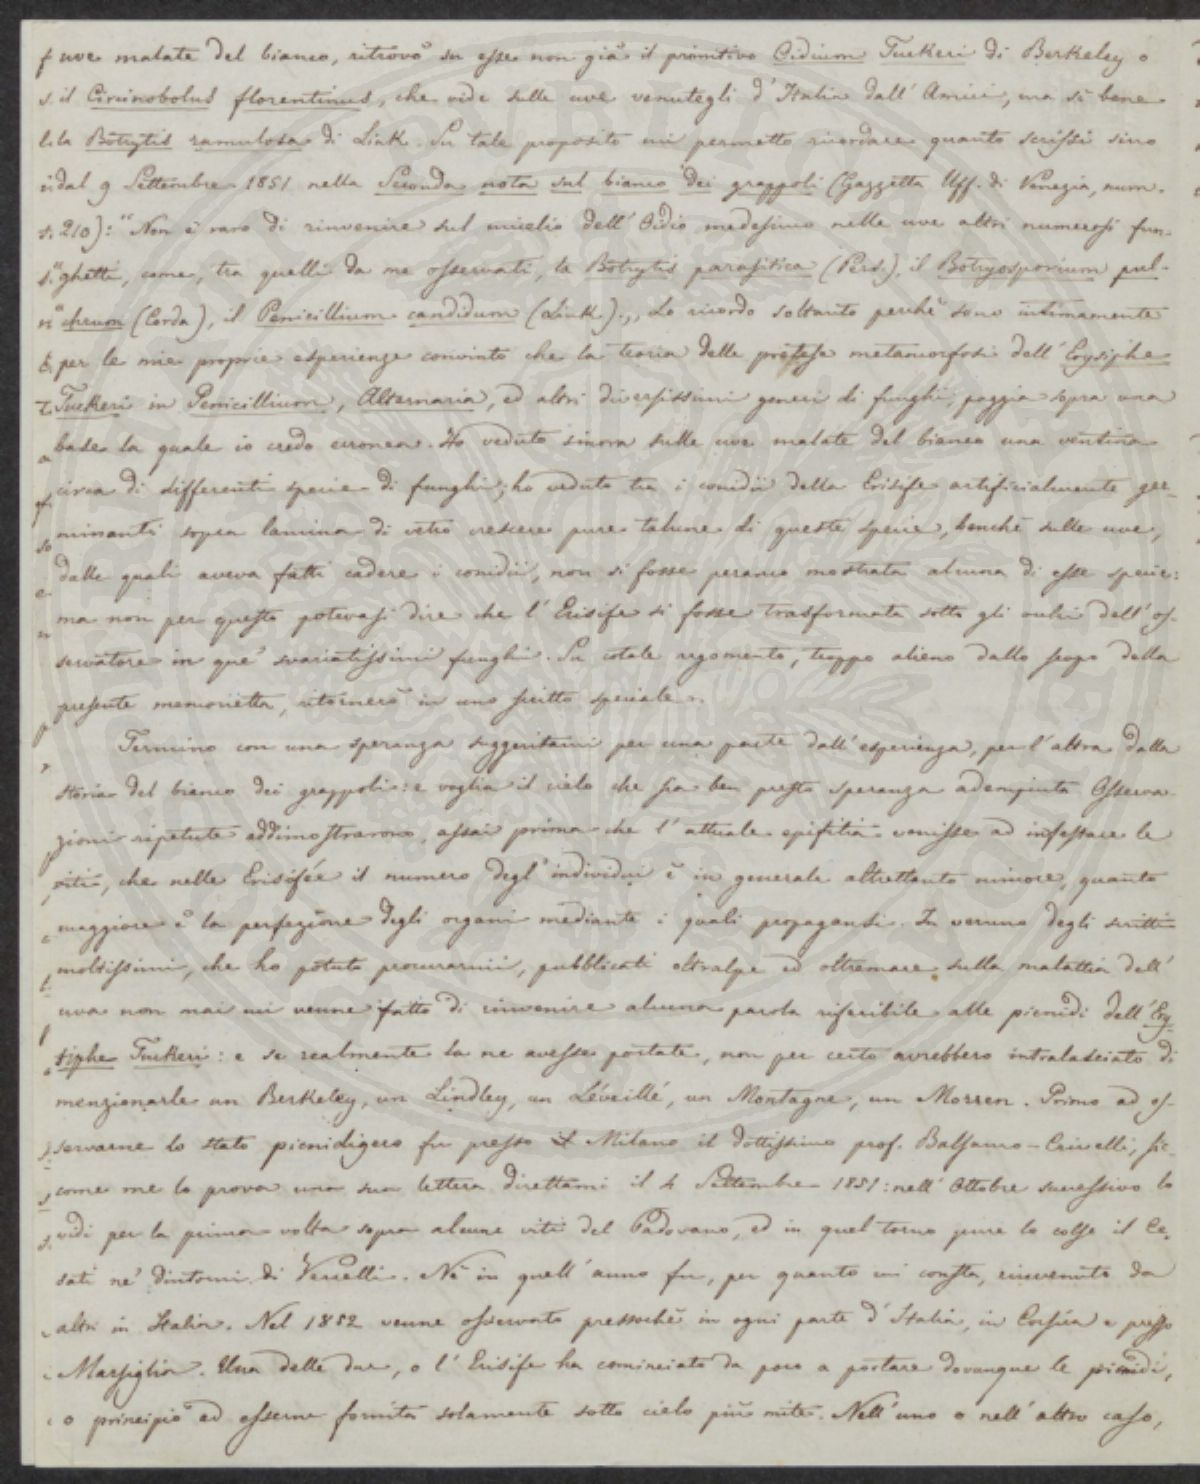 uve malate del bianco, ritrovò su esse non già il primitivo Oidium Tuckeri di Berkeley o
il Cicinobolus florentinus, che vide sulle uve venutegli d'Italia dall'Amici, ma sì bene
la Botrytis ramulosa di Link. Su tale proposito mi permetto ricordare quanto scrissi sino
dal 9 Settembre 1851 nella Seconda nota sul bianco dei grappoli (Gazzetta Uff. di Venezia, num.
210): "Non è raro di rinvenire sul micelio dell'Oidio medesimo nelle uve altri numerosi fun-
"ghetti, come, tra quelli da me osservati, la Botrytis parasitica (Pers.), il Botryosporium pul-
"chrum (Corda), il Penicillium candidum (Link).„ Lo ricordo soltanto perchè sono intimamente
per le mie proprie esperienze convinto che la teoria delle pretese metamorfosi dell'Erysiphe
Tuckeri in Penicillium, Alternaria, ed altri diversissimi generi di funghi, poggia sopra una
base la quale io credo erronea. Ho veduto sinora sulle uve malate del bianco una ventina
circa di differenti specie di funghi; ho veduto tra i conidii della Erisife artificialmente ger-
minanti sopra lamina di vetro crescere pure talune di queste specie, benchè sulle uve,
dalle quali aveva fatti cadere i conidii, non si fosse peranco mostrata alcuna di esse specie:
ma non per questo potevasi dire che l'Erisife si fosse trasformata sotto gli occhi dell'os-
servatore in que' svariatissimi funghi. Su cotale argomento, troppo alieno dallo scopo della
presente memorietta, ritornerò in uno scritto speciale.
Termino con una speranza suggeritami per una parte dall'esperienza, per l'altra dalla
storia del bianco dei grappoli: e voglia il cielo che sia ben presto speranza adempiuta. Osserva-
zioni ripetute addimostrarono, assai prima che l'attuale epifitia venisse ad infestare le
viti, che nelle Erisifée il numero degl'individui è in generale altrettanto minore, quanto
maggiore è la perfezione degli organi mediante i quali propagansi. In veruno degli scritti
moltissimi, che ho potuto procurarmi, pubblicati oltralpe ed oltremare sulla malattia dell'
uva non mai mi venne fatto di rinvenire alcuna parola riferibile alle picnidi dell'Ery-
siphe Tuckeri: e se realmente la ne avesse portate, non per certo avrebbero intralasciato di
menzionarle un Berkeley, un Lindley, un Léveillé, un Montagne, un Morren. Primo ad os-
servarne lo stato picnidigero fu presso Milano il dottissimo prof. Balsamo-Crivelli, sic-
come me lo prova una sua lettera direttami il 4 Settembre 1851: nell'Ottobre successivo lo
vidi per la prima volta sopra alcune viti del Padovano, ed in quel torno pure lo colse il Ce-
sati ne' dintorni di Vercelli. Nè in quell'anno fu, per quanto mi consta, rinvenuto da
altri in Italia. Nel 1852 venne osservato pressochè in ogni parte d'Italia, in Corsica e presso
Marsiglia. Una delle due, o l'Erisife ha cominciato da poco a portare dovunque le picnidi,
o principiò ad esserne fornita solamente sotto cielo più mite. Nell'uno o nell'altro caso,